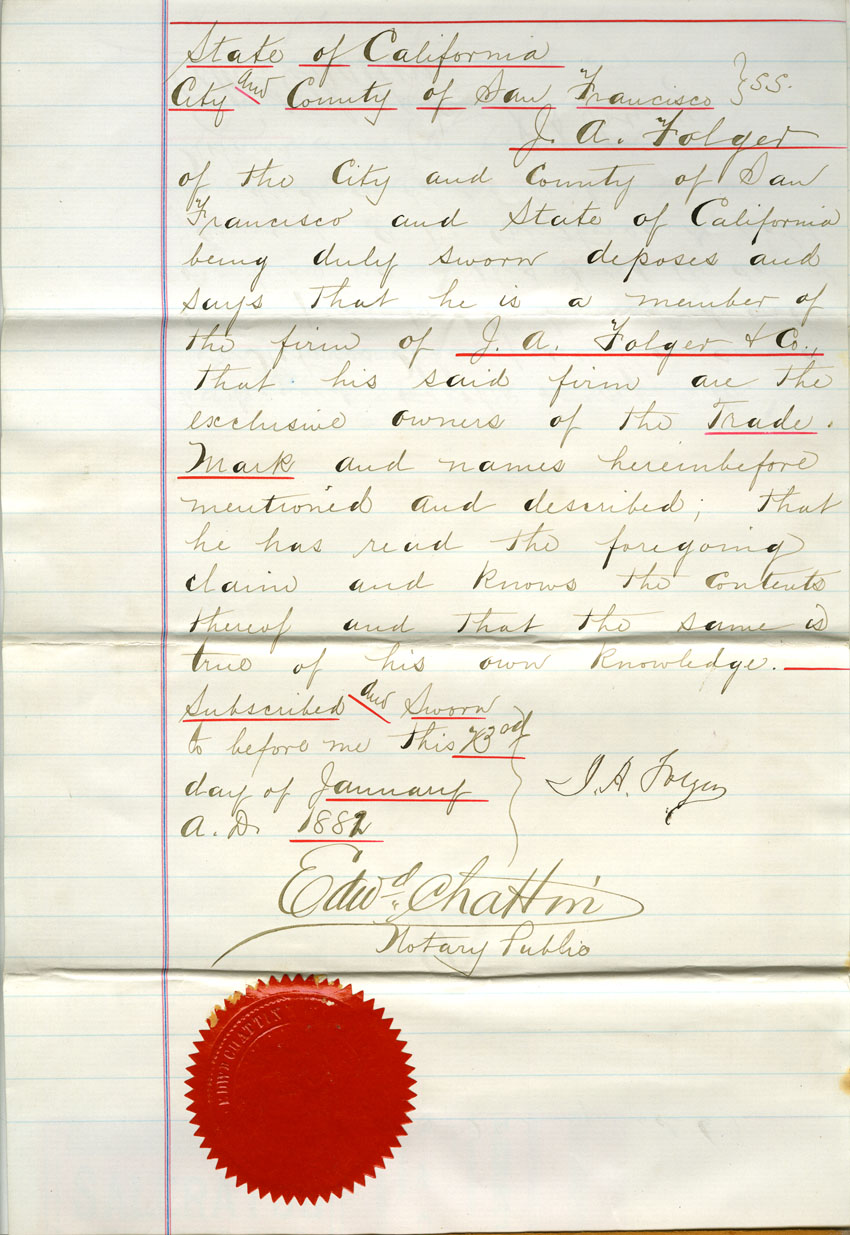 State of California
City and County of San Francisco } S.S.
J. A. Folger
of the City and County of San
Francisco and State of California
being duly sworn deposes and
says that he is a member of
the firm of J. A. Folger & Co.,
that his said firm are the
exclusive owners of the Trade.
Mark and names hereinbefore
mentioned and described; that
he has read the foregoing
claim and knows the contents
thereof and that the same is
true of his own knowledge.
Subscribed and Sworn
to before me this 23rd
day of January
A.D. 1882
J. A. Folger
Edwd. Chattin
Notary Public
EDWD CHATTIN